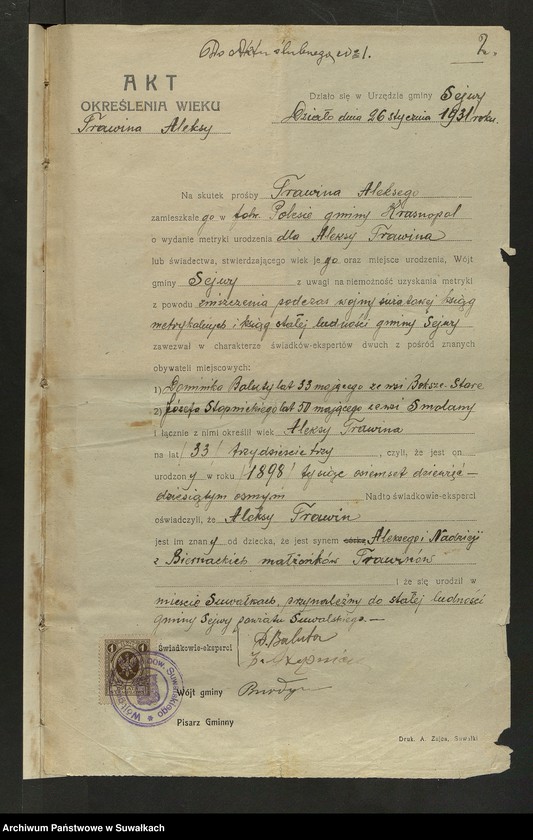 Do Aktu ślubnego 1.
2.
AKT
OKREŚLENIA WIEKU
Trawina Aleksy
Działo się w Urzędzie gminy Sejwy
Działo dnia 26 stycznia 1931 roku.
Na skutek prośby Trawina Aleksego
zamieszkałego w folw. Polesie gminy Krasnopol
o wydanie metryki urodzenia dla Aleksy Trawina
lub świadectwa, stwierdzającego wiek jego oraz miejsce urodzenia, Wójt
gminy Sejwy z uwagi na niemożność uzyskania metryki
z powodu zniszczenia podczas wojny światowej ksiąg
metrykalnych i ksiąg stałej ludności gminy Sejwy
zawezwał w charakterze świadków-ekspertów dwóch z pośród znanych
obywateli miejscowych:
1) Dominika Baluty lat 53 mającego ze wsi Beksze-Stare
2) Józefa Stopnickiego lat 50 mającego ze wsi Smolany
i łącznie z nimi określił wiek Aleksy Trawina
na lat /33/ trzydzieście trzy, czyli, że jest on
urodzony w roku /1898/ tysiąc osiemset dziewięć-
dziesiątym ósmym Nadto świadkowie-eksperci
oświadczyli, że Aleksy Trawin
jest im znany od dziecka, że jest synem córką Aleksego i Nadzieji
z Biernackich małżonków Trawinów
i że się urodził w
mieście Suwałkach, przynależny do stałej ludności
gminy Sejwy powiatu Suwalskiego.-
Świadkowie-eksperci
D. Baluta
Wójt gminy
Pisarz Gminny
1 1
Pow. Suwalskiego
Druk. A. Zajza, Suwałki
Archiwum Państwowe w Suwałkach